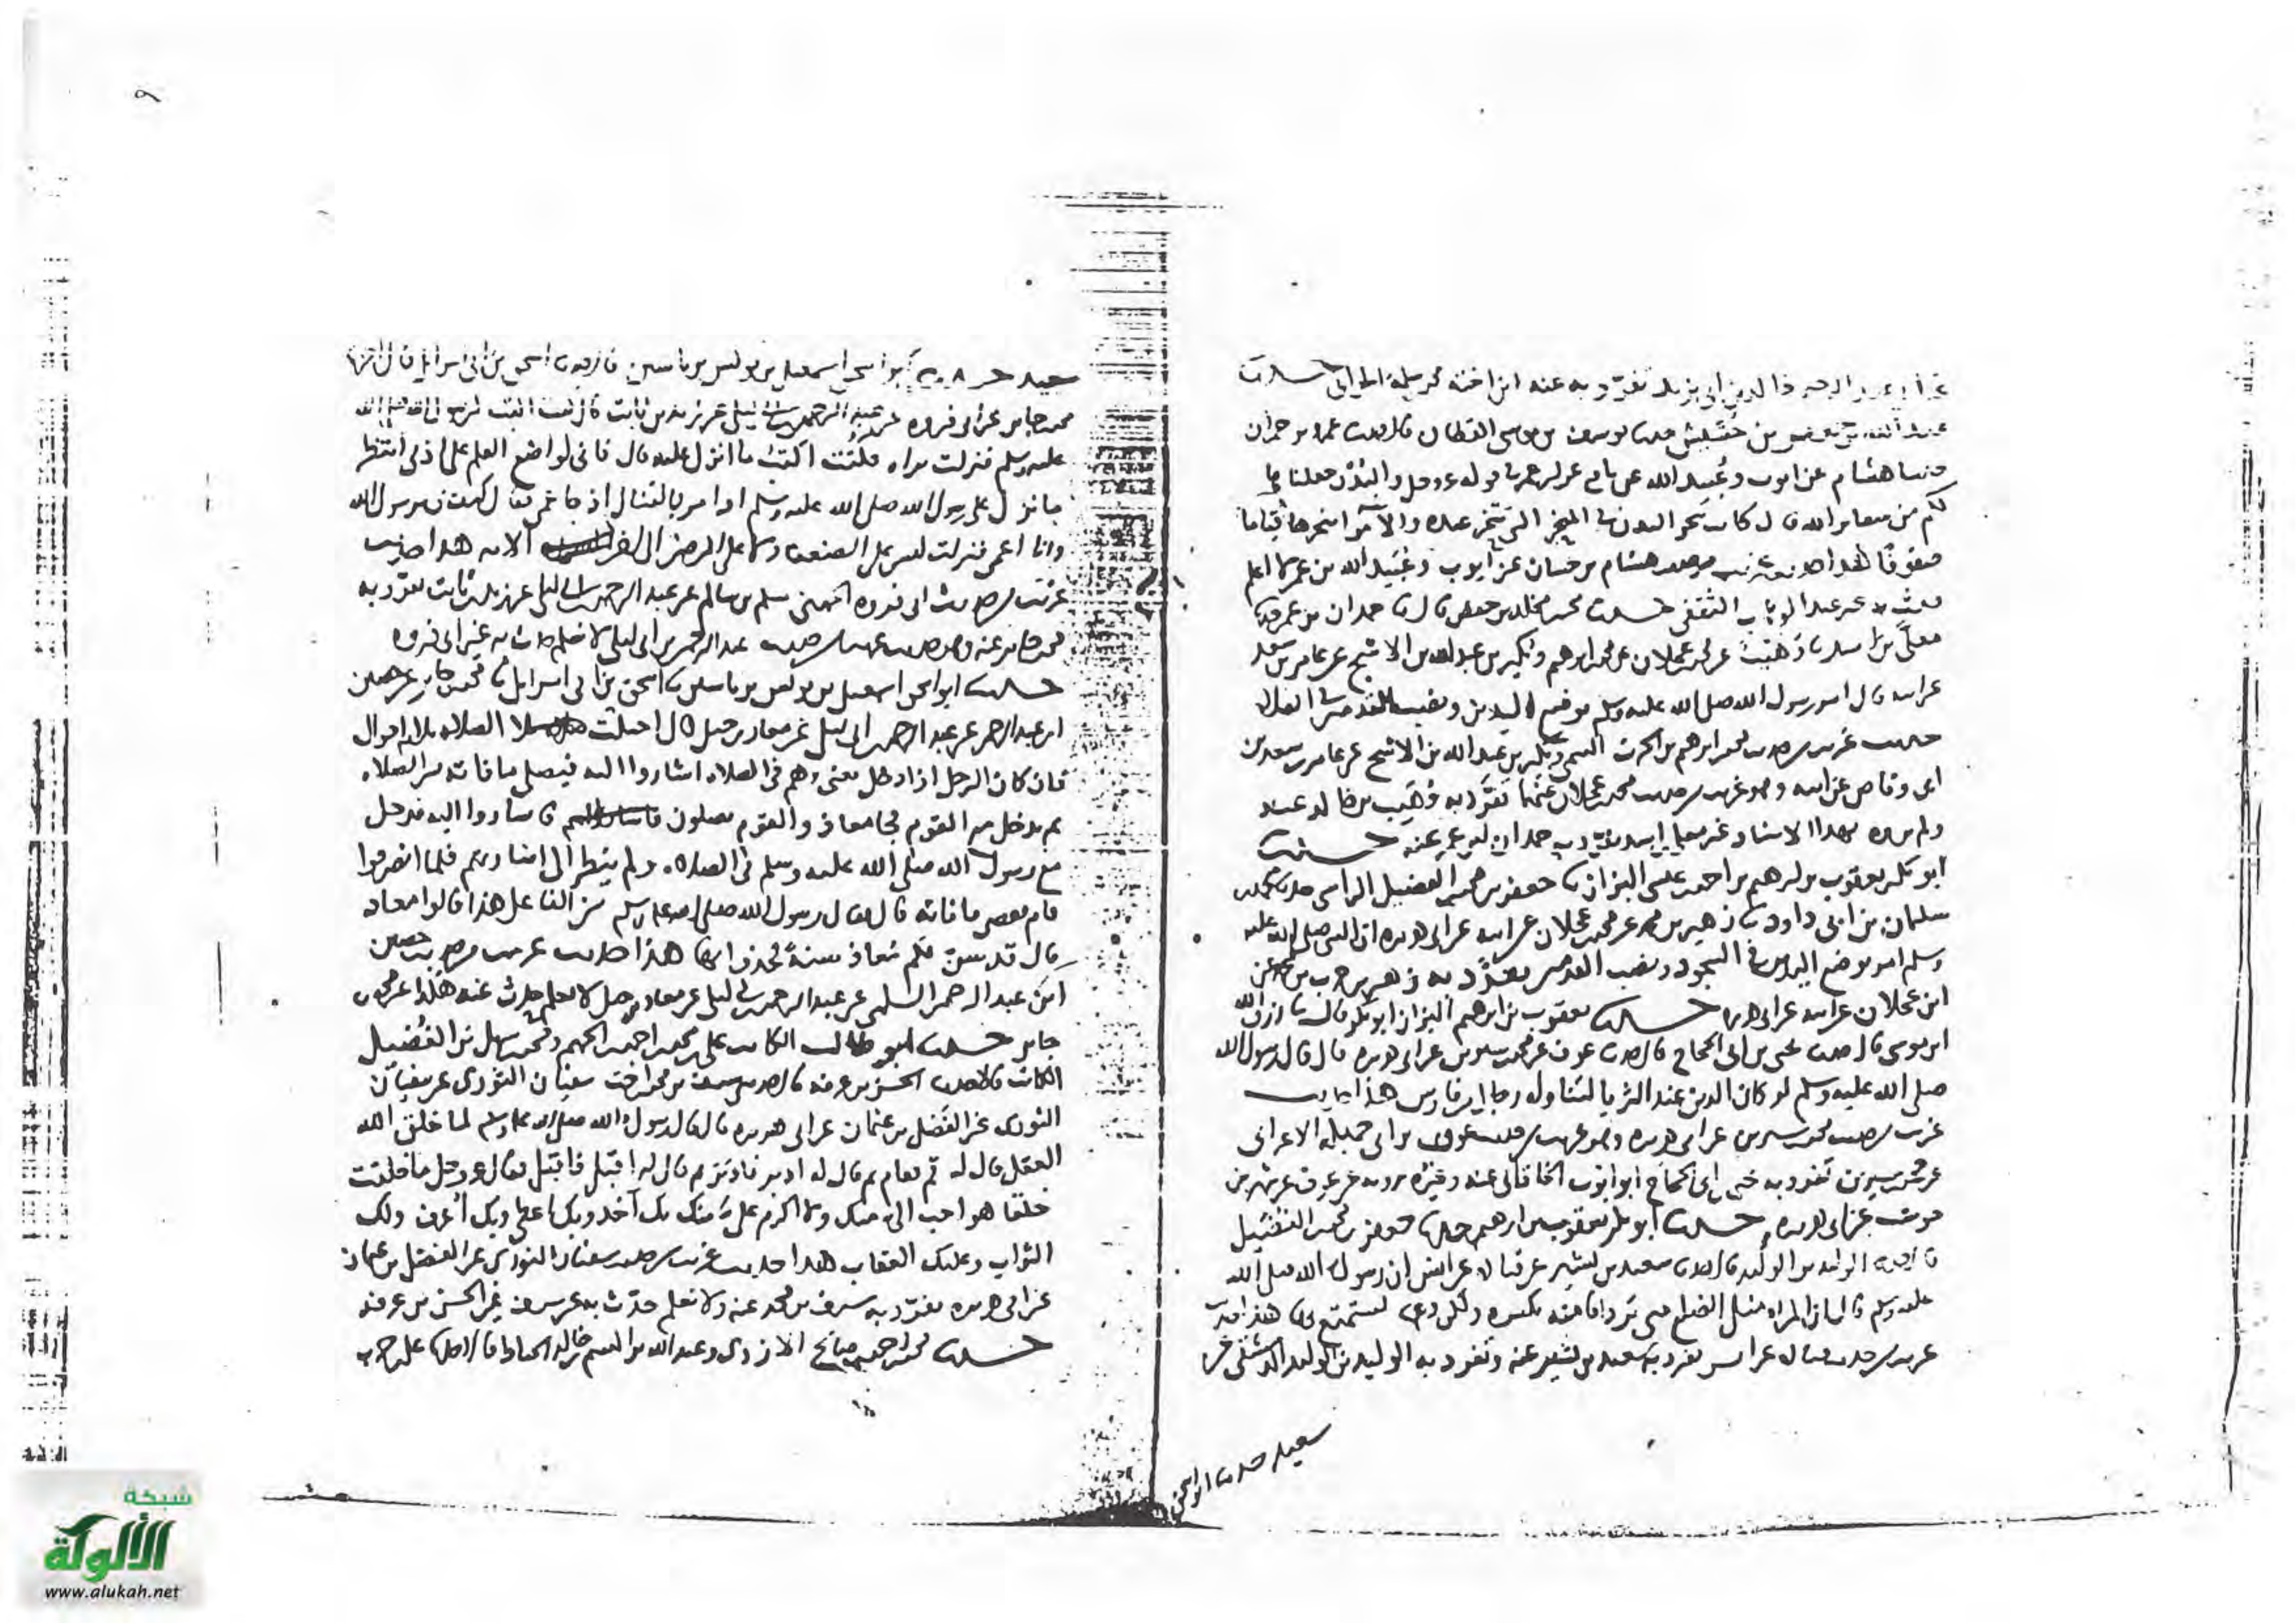 عبد الرحيم خالد بن ابي يزيد تفرد به عنه ابن اخته محمد بن سلمة الحراني حدثنا
حدثنا يوسف بن موسى القطان قال حدثنا عمرو بن حمران
هشام عن ايوب وعبيد الله عن نافع عن ابن عمر قوله عز وجل والبدن جعلناها
لكم من شعاير الله قال كانت تنحر البدن في المنحر الذي ينحر عنده والا مر انحرها قياما
صفوفا هذا حديث غريب من حديث هشام بن حسان عن ايوب وعبيد الله بن عمر لا اعلم
حدث به غير عبد الوهاب الثقفي حدثنا محمد بن مخلد بن حفص قال نا حمدان بن عمر حدثنا
معلى بن اسد نا وهيب عن ابن عجلان عن محمد بن ابرهيم وبكير بن عبد الله بن الاشج عن عامر بن سعد
عن ابيه قال امر رسول الله صلى الله عليه وسلم بوضع اليدين ونصب القدمين في الصلاة
حديث غريب من حديث محمد بن ابرهيم بن الحرث التيمي وبكير بن عبد الله بن الاشج عن عامر بن سعد بن
ابي وقاص عن ابيه وهو غريب من حديث محمد بن عجلان عنهما تفرد به وهيب بن خالد عنه
ولم يروه بهذا الاسناد غير معلى بن اسد تفرد به حمدان بن عمر عنه حدثنا
ابو بكر يعقوب بن ابرهيم بن احمد بن عيسى البزاز نا جعفر بن محمد بن الفضيل الراسي حدثنا محمد بن
سلمان بن ابي داود نا زهير بن محمد عن محمد بن عجلان عن ابيه عن ابي هريرة ان النبي صلى الله عليه
وسلم امر بوضع اليدين في السجود ونصب القدمين تفرد به زهير بن محمد عن
ابن عجلان عن ابيه عن ابي هريرة حدثنا يعقوب بن ابرهيم البزاز ابو بكر قال نا رزق الله
ابن موسى قال حدثنا يحيى بن ابي الحجاج قال حدثنا عوف عن محمد بن سيرين عن ابي هريرة قال قال رسول الله
صلى الله عليه وسلم لو كان الدين عند الثريا لتناوله رجال من فارس هذا حديث
غريب من حديث محمد بن سيرين عن ابي هريرة وهو غريب من حديث عوف بن ابي جميلة الاعرابي
عن محمد بن سيرين تفرد به يحيى بن ابي الحجاج ابو ايوب الخاقاني عنه وغيره يرويه عن عوف عن شهر بن
حوشب عن ابي هريرة حدثنا ابو بكر يعقوب بن ابرهيم حدثنا جعفر بن محمد بن الفضيل
نا الوليد بن الوليد قال حدثنا سعيد بن بشير عن قتادة عن انس ان رسول الله صلى الله
عليه وسلم قال ان المراة مثل الضلع متى ترد اقامته تكسره ولكن دعه تستمتع به هذا حديث
غريب من حديث قتادة عن انس تفرد به سعيد بن بشير عنه وتفرد به الوليد بن الوليد الدمشقي عن
سعيد حدثنا ابو اسحق
٩
سعيد حدثنا ابو اسحق اسمعيل بن يونس بن ياسين قال حدثنا اسحق بن ابي اسرايل قال انبانا
محمد بن جابر عن ابي فروه عن عبد الرحمن بن ابي ليلى عن زيد بن ثابت قال كنت اكتب لرسول الله صلى الله
عليه وسلم فنزلت براه فكنت اكتب ما انزل عليه قال فاني لواضع القلم على اذني انتظر
ما نزل على رسول الله صلى الله عليه وسلم اذ امر بالقتال اذ جا اعمى فقال كيف بي يرسول الله
وانا اعمى فنزلت ليس على الضعفا ولا على المرضى الى اخر الاية هذا حديث
غريب من حديث ابي فروه الجهني مسلم بن سالم عن عبد الرحمن بن ابي ليلى عن زيد بن ثابت تفرد به
محمد بن جابر عنه وهو حديث غريب من حديث عبد الرحمن بن ابي ليلى لا نعلم حدث به غير ابي فروه
حدثنا ابو اسحق اسمعيل بن يونس بن ياسين نا اسحق بن ابي اسرايل نا محمد بن جابر عن حصين
ابن عبد الرحمن عن عبد الرحمن بن ابي ليلى عن معاذ بن جبل قال احيلت الصلاة ثلاثة احوال
قال كان الرجل اذا دخل يعني وهم في الصلاة اشاروا اليه فيصلي ما فاته من الصلاة
ثم يدخل مع القوم فجا معاذ والقوم يصلون فاشاروا اليه فدخل
مع رسول الله صلى الله عليه وسلم في الصلاة ولم ينظر الى اشارتهم فلما انصرفوا
قام يقضي ما فاته قال فقال رسول الله صلى الله عليه وسلم من الفاعل هذا قالوا معاذ
قال قد سن لكم معاذ سنة فخذوا بها هذا حديث غريب من حديث حصين
ابن عبد الرحمن السلمي عن عبد الرحمن بن ابي ليلى عن معاذ بن جبل لا نعلم حدث عنه هكذا غير محمد بن
جابر حدثنا ابو طالب الكاتب علي بن محمد بن احمد بن الجهم ومحمد بن سهل بن الفضيل
الكاتب قالا حدثنا الحسن بن عرفه قال حدثنا سيف بن محمد بن اخت سفيان الثوري عن سفيان
الثوري عن الفضل بن عثمان عن ابي هريرة قال قال رسول الله صلى الله عليه وسلم لما خلق الله
العقل قال له قم فقام ثم قال له ادبر فادبر ثم قال له اقبل فاقبل فقال عز وجل ما خلقت
خلقا هو احب الي منك ولا اكرم علي منك بك آخذ وبك اعطي وبك اعرف ولك
الثواب وعليك العقاب هذا حديث غريب من حديث سفيان الثوري عن الفضل بن عثمان
عن ابي هريرة تفرد به سيف بن محمد عنه ولا نعلم حدث به عن سيف غير الحسن بن عرفه
حدثنا محمد بن احمد بن صالح الازدي وعبد الله بن الهيثم بن خالد الخياط قالا حدثنا علي بن حرب
شبكة
الألوكة
www.alukah.net